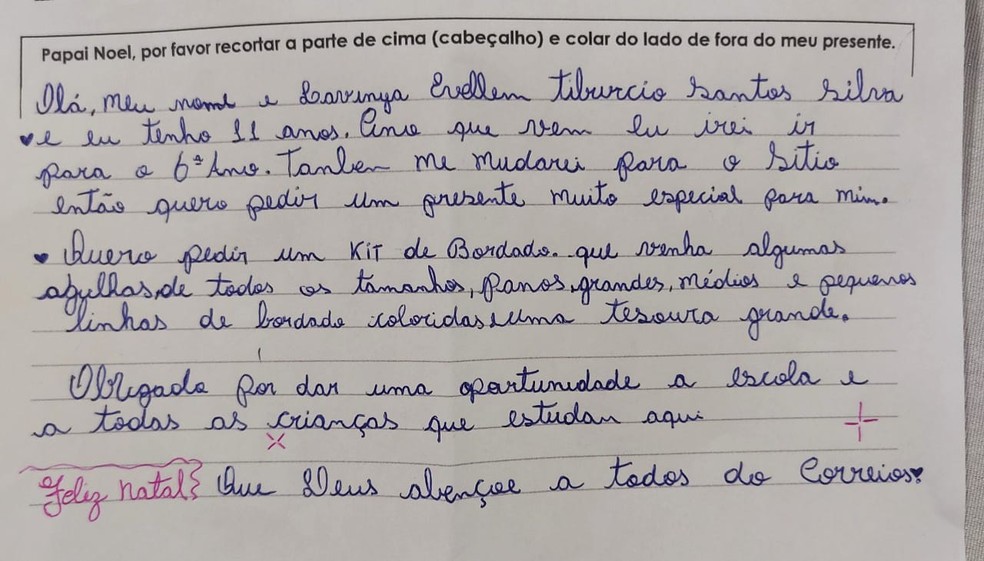 Papai Noel, por favor recortar a parte de cima (cabeçalho) e colar do lado de fora do meu presente.
Olá, meu nome e Lavinya Evellem Tiburcio Santos Silva
♥e eu tenho 11 anos. Ano que vem eu irei ir
para o 6º Ano. Tanben me mudarei para o Sítio
então quero pedir um presente muito especial para mim.
♥ Quero pedir um Kit de Bordado. que venha algumas
agulhas,de todos os tamanhos, panos,grandes, médios e pequenos
linhas de bordado coloridas e uma tesoura grande.
Obrigada por dar uma oportunidade a escola e
a todas as crianças que estudan aqui
Feliz natal! Que Deus abençoe a todos do Correios♥